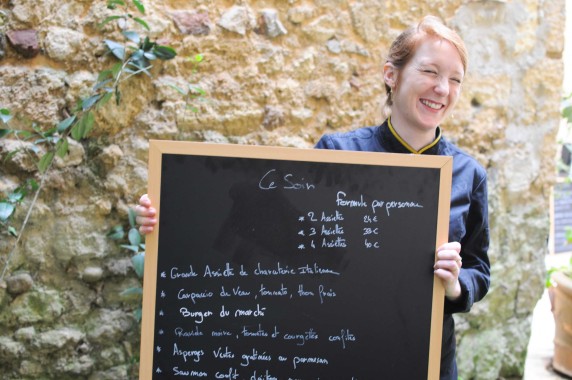 Ce Soir
formule par personne
* 2 Assiettes 24€
* 3 Assiettes 33€
* 4 Assiettes 40€
* Grande Assiette de charcuterie Italienne
* Carpaccio de Veau, tonnato, thon frais
* Burger du marché
* noire, tomates et courgettes confites
* Asperges Vertes gratinées au parmesan
* Saumon confit